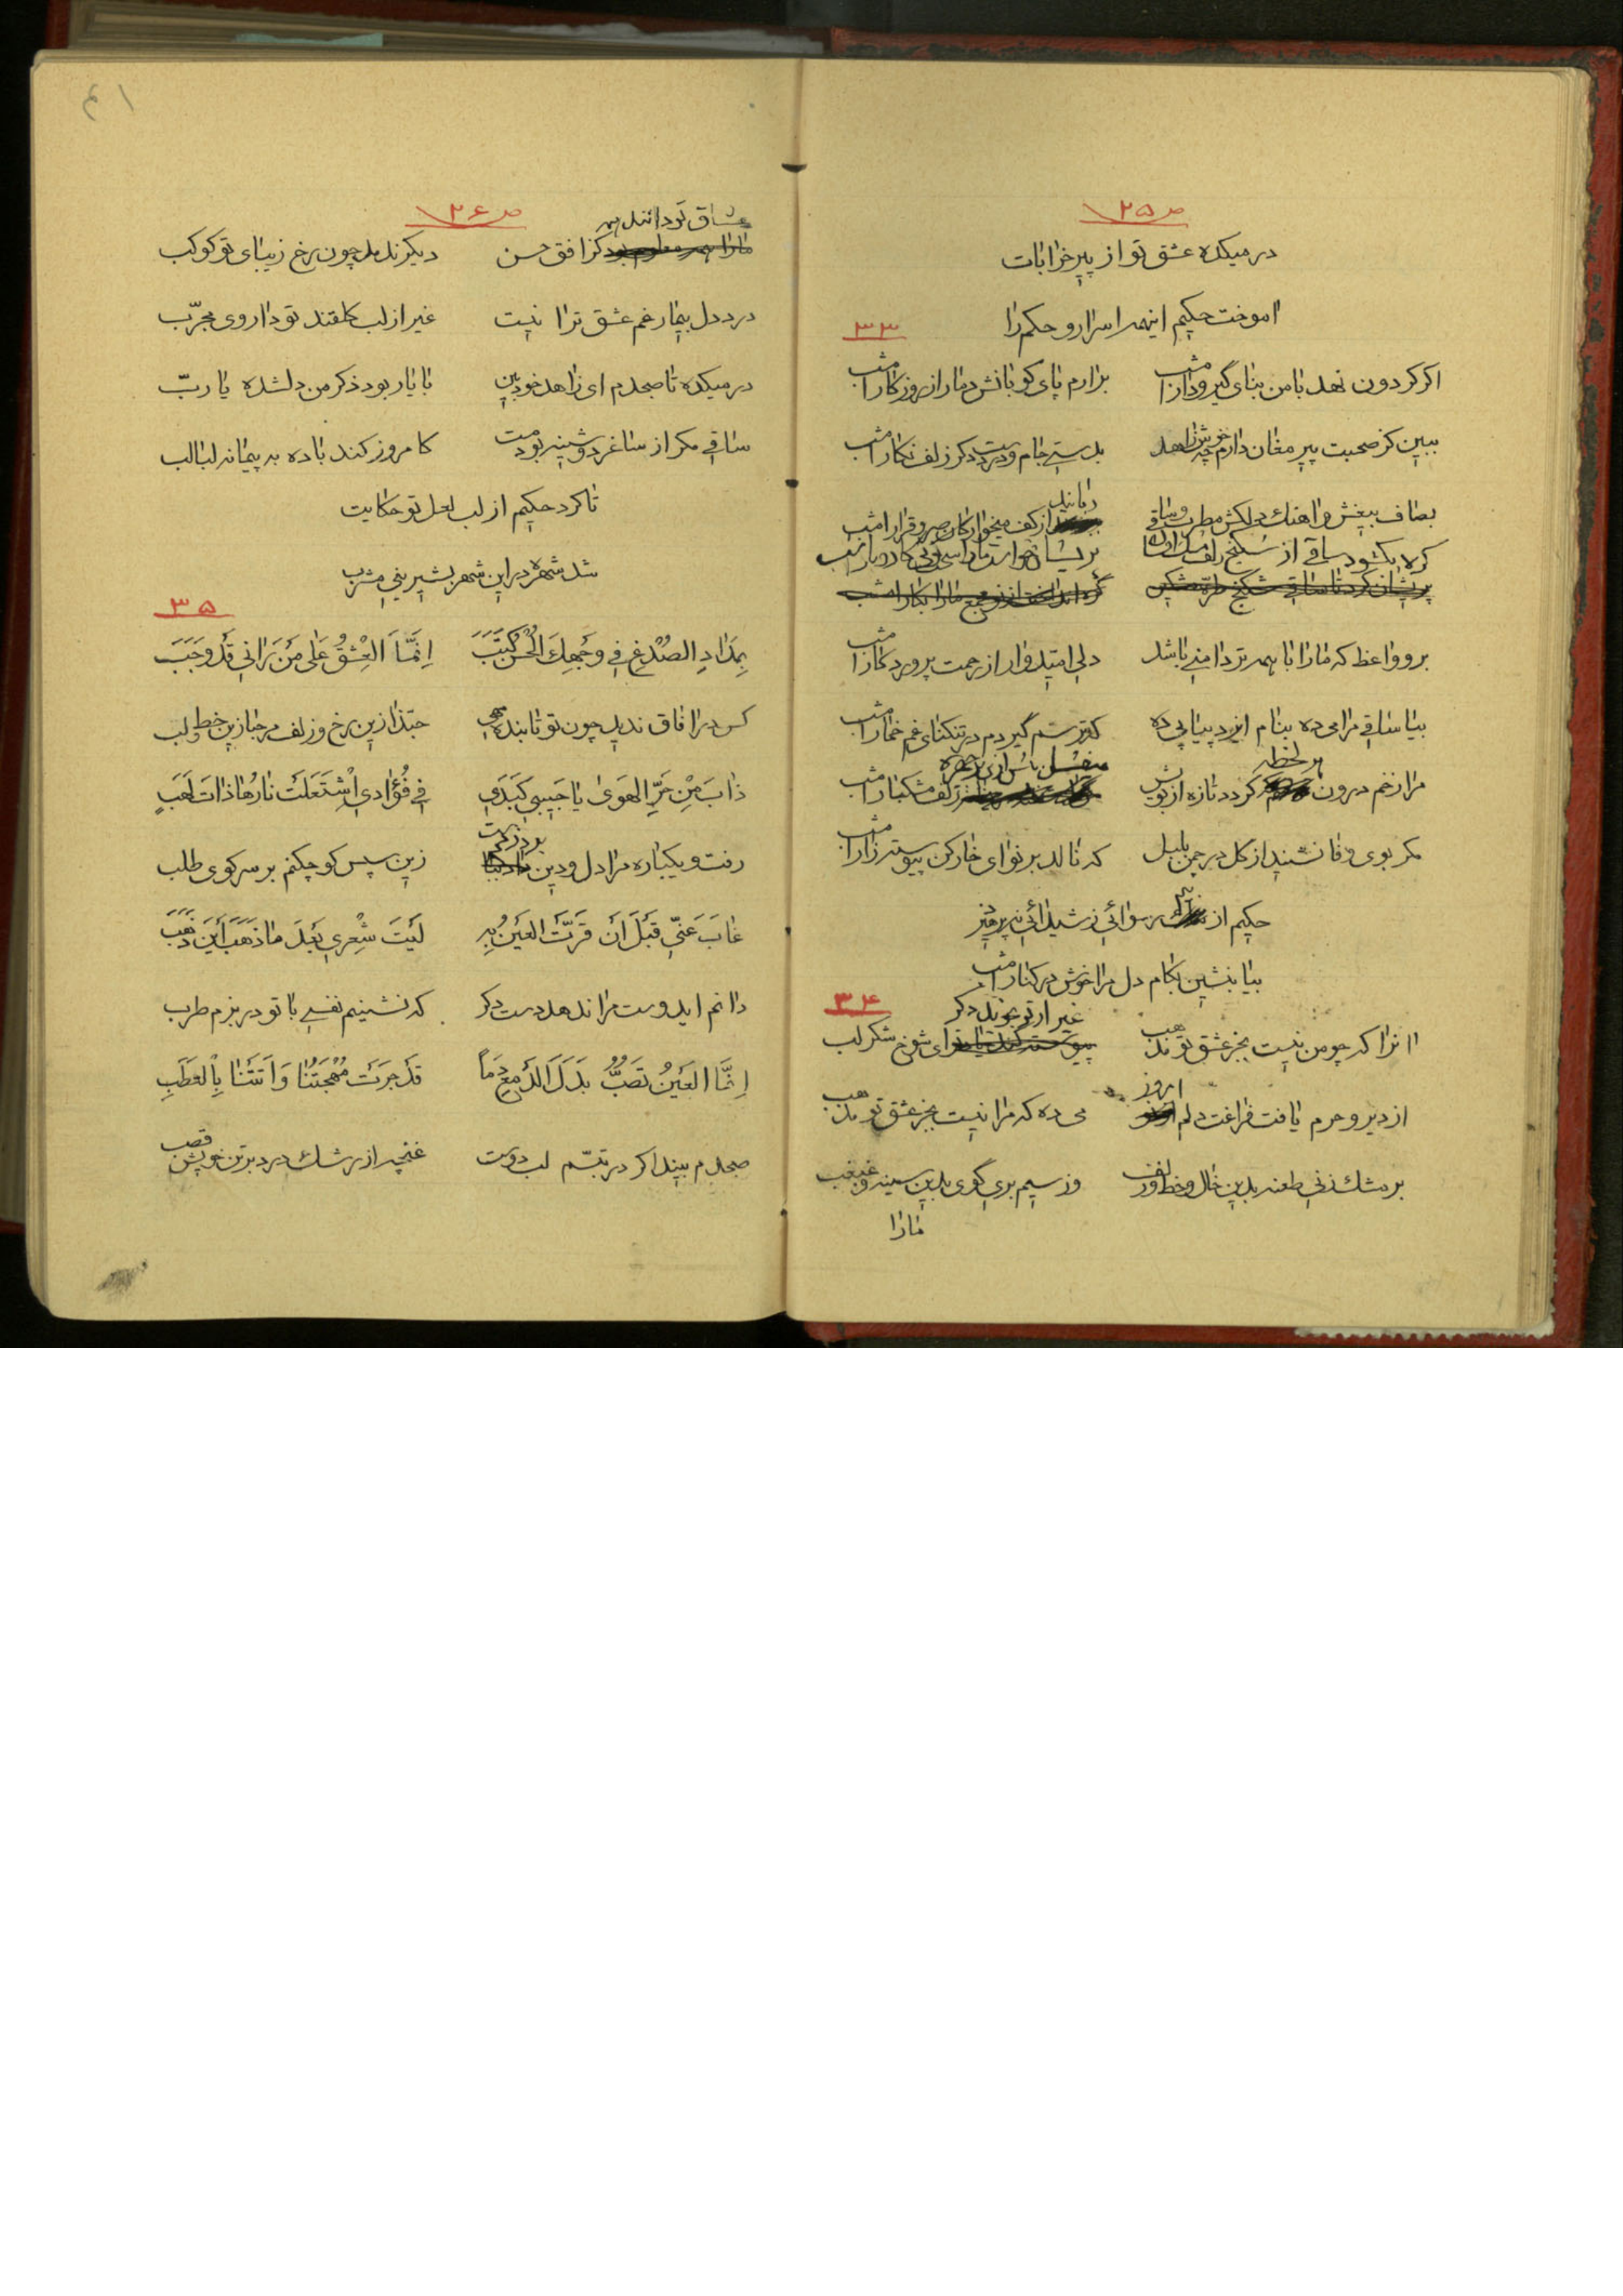 ص ٢٥
در میکده عشق تو از پیر خرابات
اموخت حکیم اینهمه اسرار و حکم را
٣٣
اکر کردون نهد با من بنای گیرودار امشب
برارم پای کوبانش دمار از روزکار امشب
ببین کز صحبت پیر مغان دارم چه خوش زاهد
بدستی جام و در دست دکر زلف نکار امشب
بصاف بیغش و اهنك دلکش مطرب و ساقی
ربایند از کف میخوارکان صبر و قرار امشب
کره بکشود ساقی از شکنج زلف
پریشان کرد تا ساقی شکنج طره مشکین
برو واعظ که مارا با همه تردامنی باشد
دلی امیدوار از رحمت پروردکار امشب
بیا ساقی مرا می ده بنام ایزد پیاپی ده
که ترسم گیردم در تنکنای غم خمار امشب
مرا زخم درون هر لحظه کردد تازه از بویش
زلف مشکبار امشب
مکر بوی وفا نشنید از کل در چمن بلبل
که نالد بر نوای خارکن پیوسته زار امشب
حکیم از رسوائی ز شیدائی نپرهیزد
بیا بنشین بکام دل مرا خوش در کنار امشب
٣٤
انرا که چو من نیست بجز عشق تو مذهب
غیر از تو نجوید دکر ای شوخ شکر لب
از دیر و حرم یافت فراغت دلم امروز
می ده که مرا نیست بجز عشق تو مذهب
بر مشك زنی طعنه بدین خال و خط و زلف
وز سیم بری گوی بدین سینه و غبغب
مارا
٤١
ص ٢٦
عشاق تو دانند همه کز افق حسن
دیکر ندمد چون رخ زیبای تو کوکب
درد دل بیمار غم عشق ترا نیست
غیر از لب کلقند تو داروی مجرّب
در میکده تا صبحدم ای زاهد خودبین
با یار بود ذکر من دلشده یا ربّ
ساقی مکر از ساغر دوشینه بود مست
کامروز کند باده به پیمانه لبالب
تا کرد حکیم از لب لعل تو حکایت
شد شهره در این شهر بشیرینی مشرب
٣٥
بِمِدَادِ الصُدْغِ فی وَجْهِكَ الْحُسْنُ كَتَبَ
اِنَّمَا الْعِشْقُ عَلٰی مَنْ یَرانی قَدْ وَجَبَ
کس در افاق ندید چون تو تابنده مهی
حبّذا زین رخ و زلف مرحبا زین خط و لب
ذابَ مِنْ حَرِّ الهَویٰ یا حَبیبی کَبَدی
فی فُؤادی اِشْتَعَلَتْ نارُها ذاتَ لَهَبٍ
رفت و یکباره مرا دل و دین بود ز دست
زین سپس کو چکنم بر سر کوی طلب
غابَ عَنّی قَبْلَ اَنْ قَرَّتْ العَیْنُ بِهِ
لَیْتَ شِعْری بَعْدَ ما ذَهَبَ اَیْنَ ذَهَبَ
دانم ایدوست مرا ندهد دست دکر
که نشینم نفسی با تو در بزم طرب
اِنَّمَا العَیْنُ تَصُبُّ بَدَلَ الدَمْعِ دَمَاً
قَدْ جَرَتْ مُهْجَتُنا وَ اَتَتْنا بِالْعَطَبِ
صبحدم بیند اکر در تبسّم لب دوست
غنچه از رشك درد بر تن خویش قصب